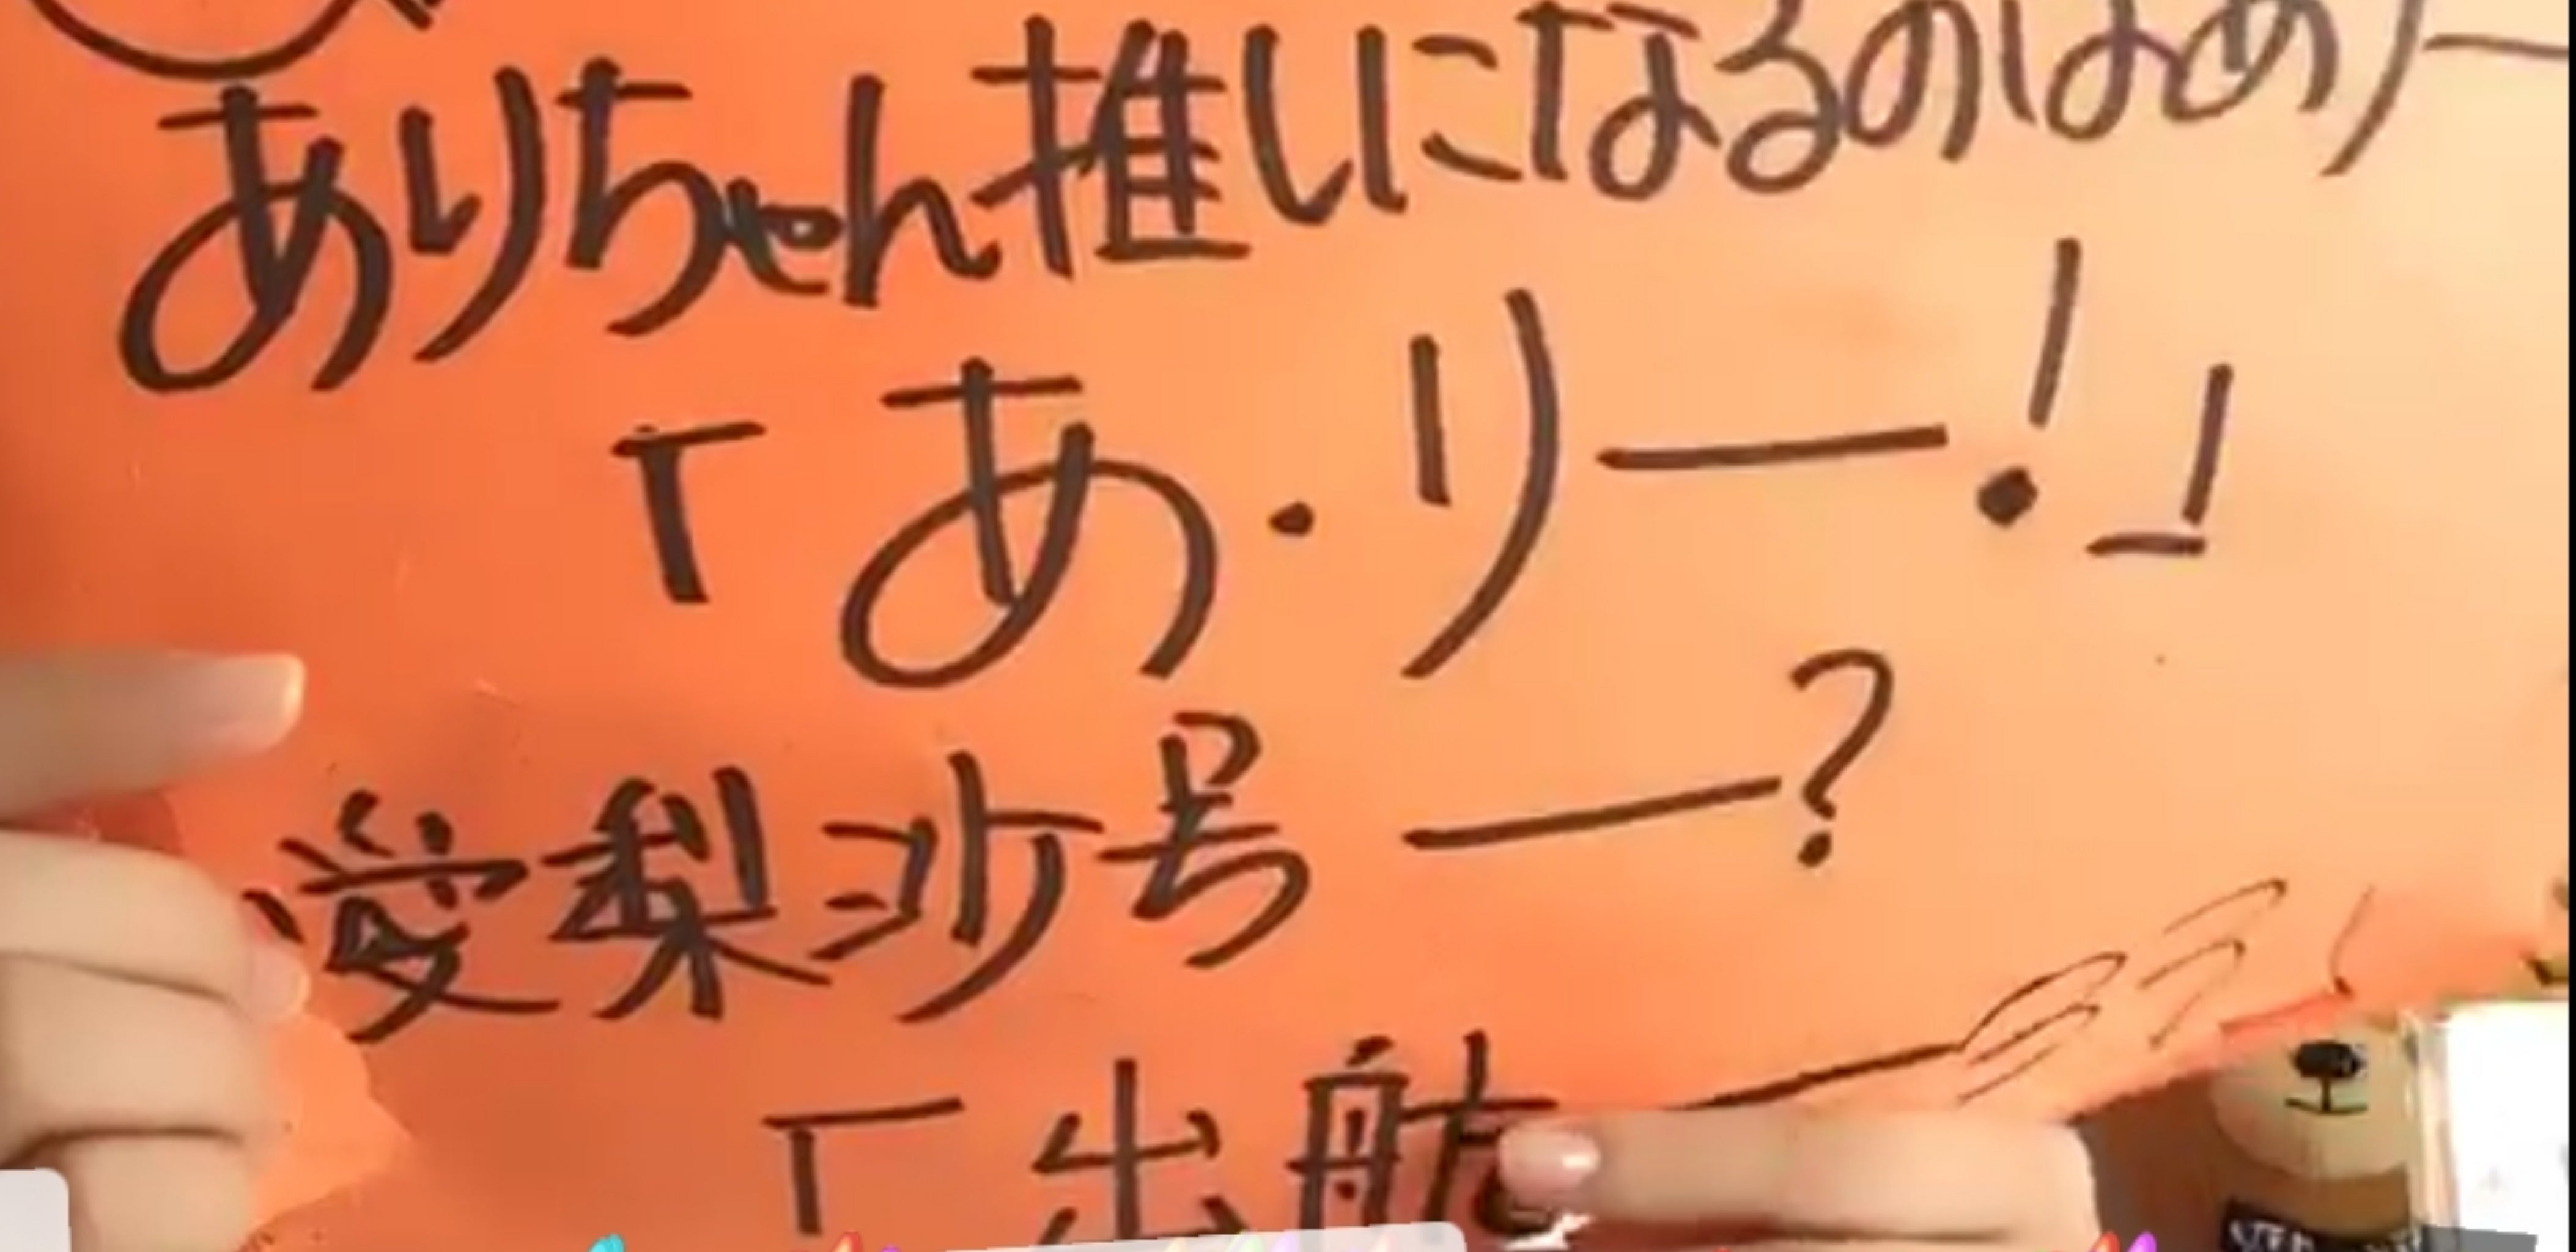 ありちゃん推しになるのはあり―
「あ・りー!」
愛梨沙号 ―?
「出航